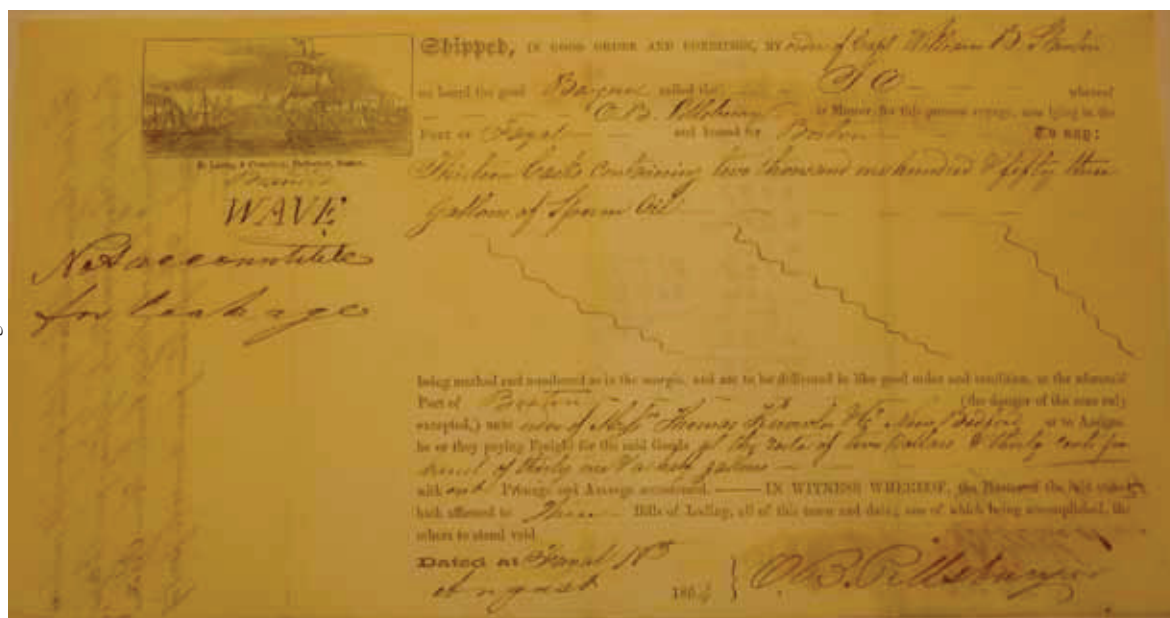 Shipped, IN GOOD ORDER AND CONDITION, BY order of Capt William B.
on board the good Barque called the IO whereof
O.B. Pillsbury is Master, for this present voyage, now lying in the
Port of Fayal and bound for Boston To say:
Thirteen Casks containing two thousand one hundred & fifty three
gallons of Sperm Oil
WAVE
Not accountible
for leakage
being marked and numbered as in the margin, and are to be delivered in like good order and condition, at the aforesaid
Port of Boston (the danger of the seas only
excepted,) unto Thomas Knowles & Co New Bedford or to Assigns
he or they paying Freight for the said Goods at the rate of two Dollars & thirty cents
of thirty one & a half gallons
with out Primage and Average accustomed. IN WITNESS WHEREOF, the Master of the said
hath affirmed to Three Bills of Lading, all of this tenor and date; one of which being accomplished, the
others to stand void.
Dated at Fayal
August 185
O.B. Pillsbury